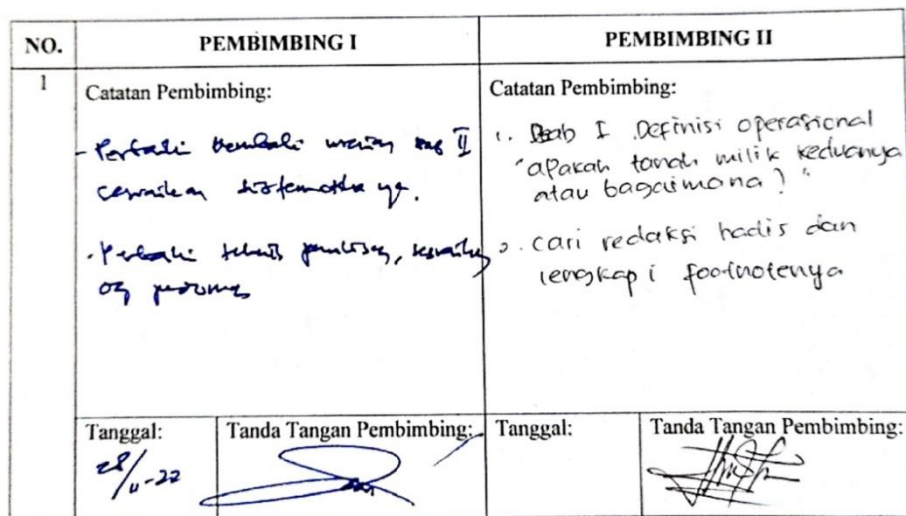 NO.
PEMBIMBING I
PEMBIMBING II
1
Catatan Pembimbing:
- Perbaiki kembali uraian bab II
sesuaikan sistematika nya.
- Perbaiki teknis penulisan, sesuaikan
dg pedoman
Catatan Pembimbing:
1. Bab I Definisi operasional
"apakah tanah milik keduanya
atau bagaimana?"
2. cari redaksi hadis dan
lengkapi footnotenya
Tanggal:
28/11-22
Tanda Tangan Pembimbing:
Tanggal:
Tanda Tangan Pembimbing: